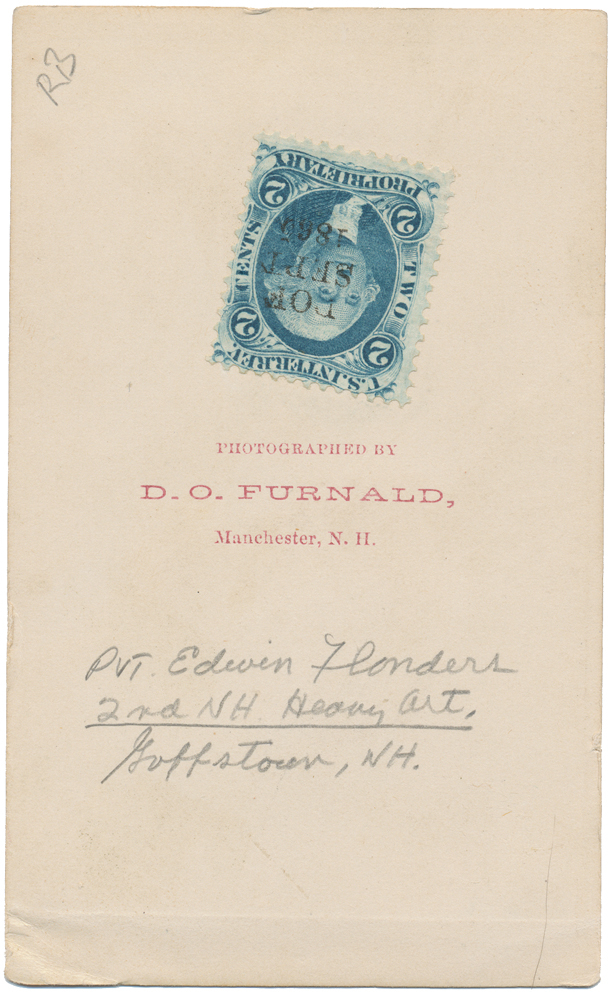 RB
PROPRIETARY
2 2
CENTS TWO
2 2
U.S. INTER. REV.
DOF
SEPT
PHOTOGRAPHED BY
D. O. FURNALD,
Manchester, N. H.
PVT. Edwin Flanders
2nd NH Heavy Art.
Goffstown, NH.